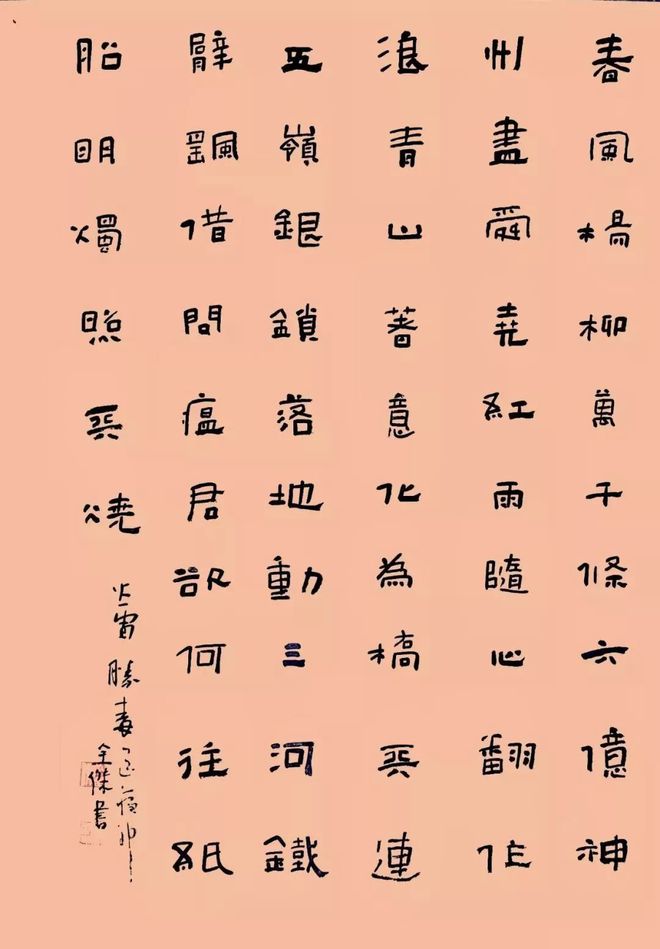 春風楊柳萬千條六億神
州盡舜堯紅雨隨心翻作
浪青山著意化為橋天連
五嶺銀鎖落地動三河鐵
臂颻借問瘟君欲何往紙
船明燭照天燒
全傑書